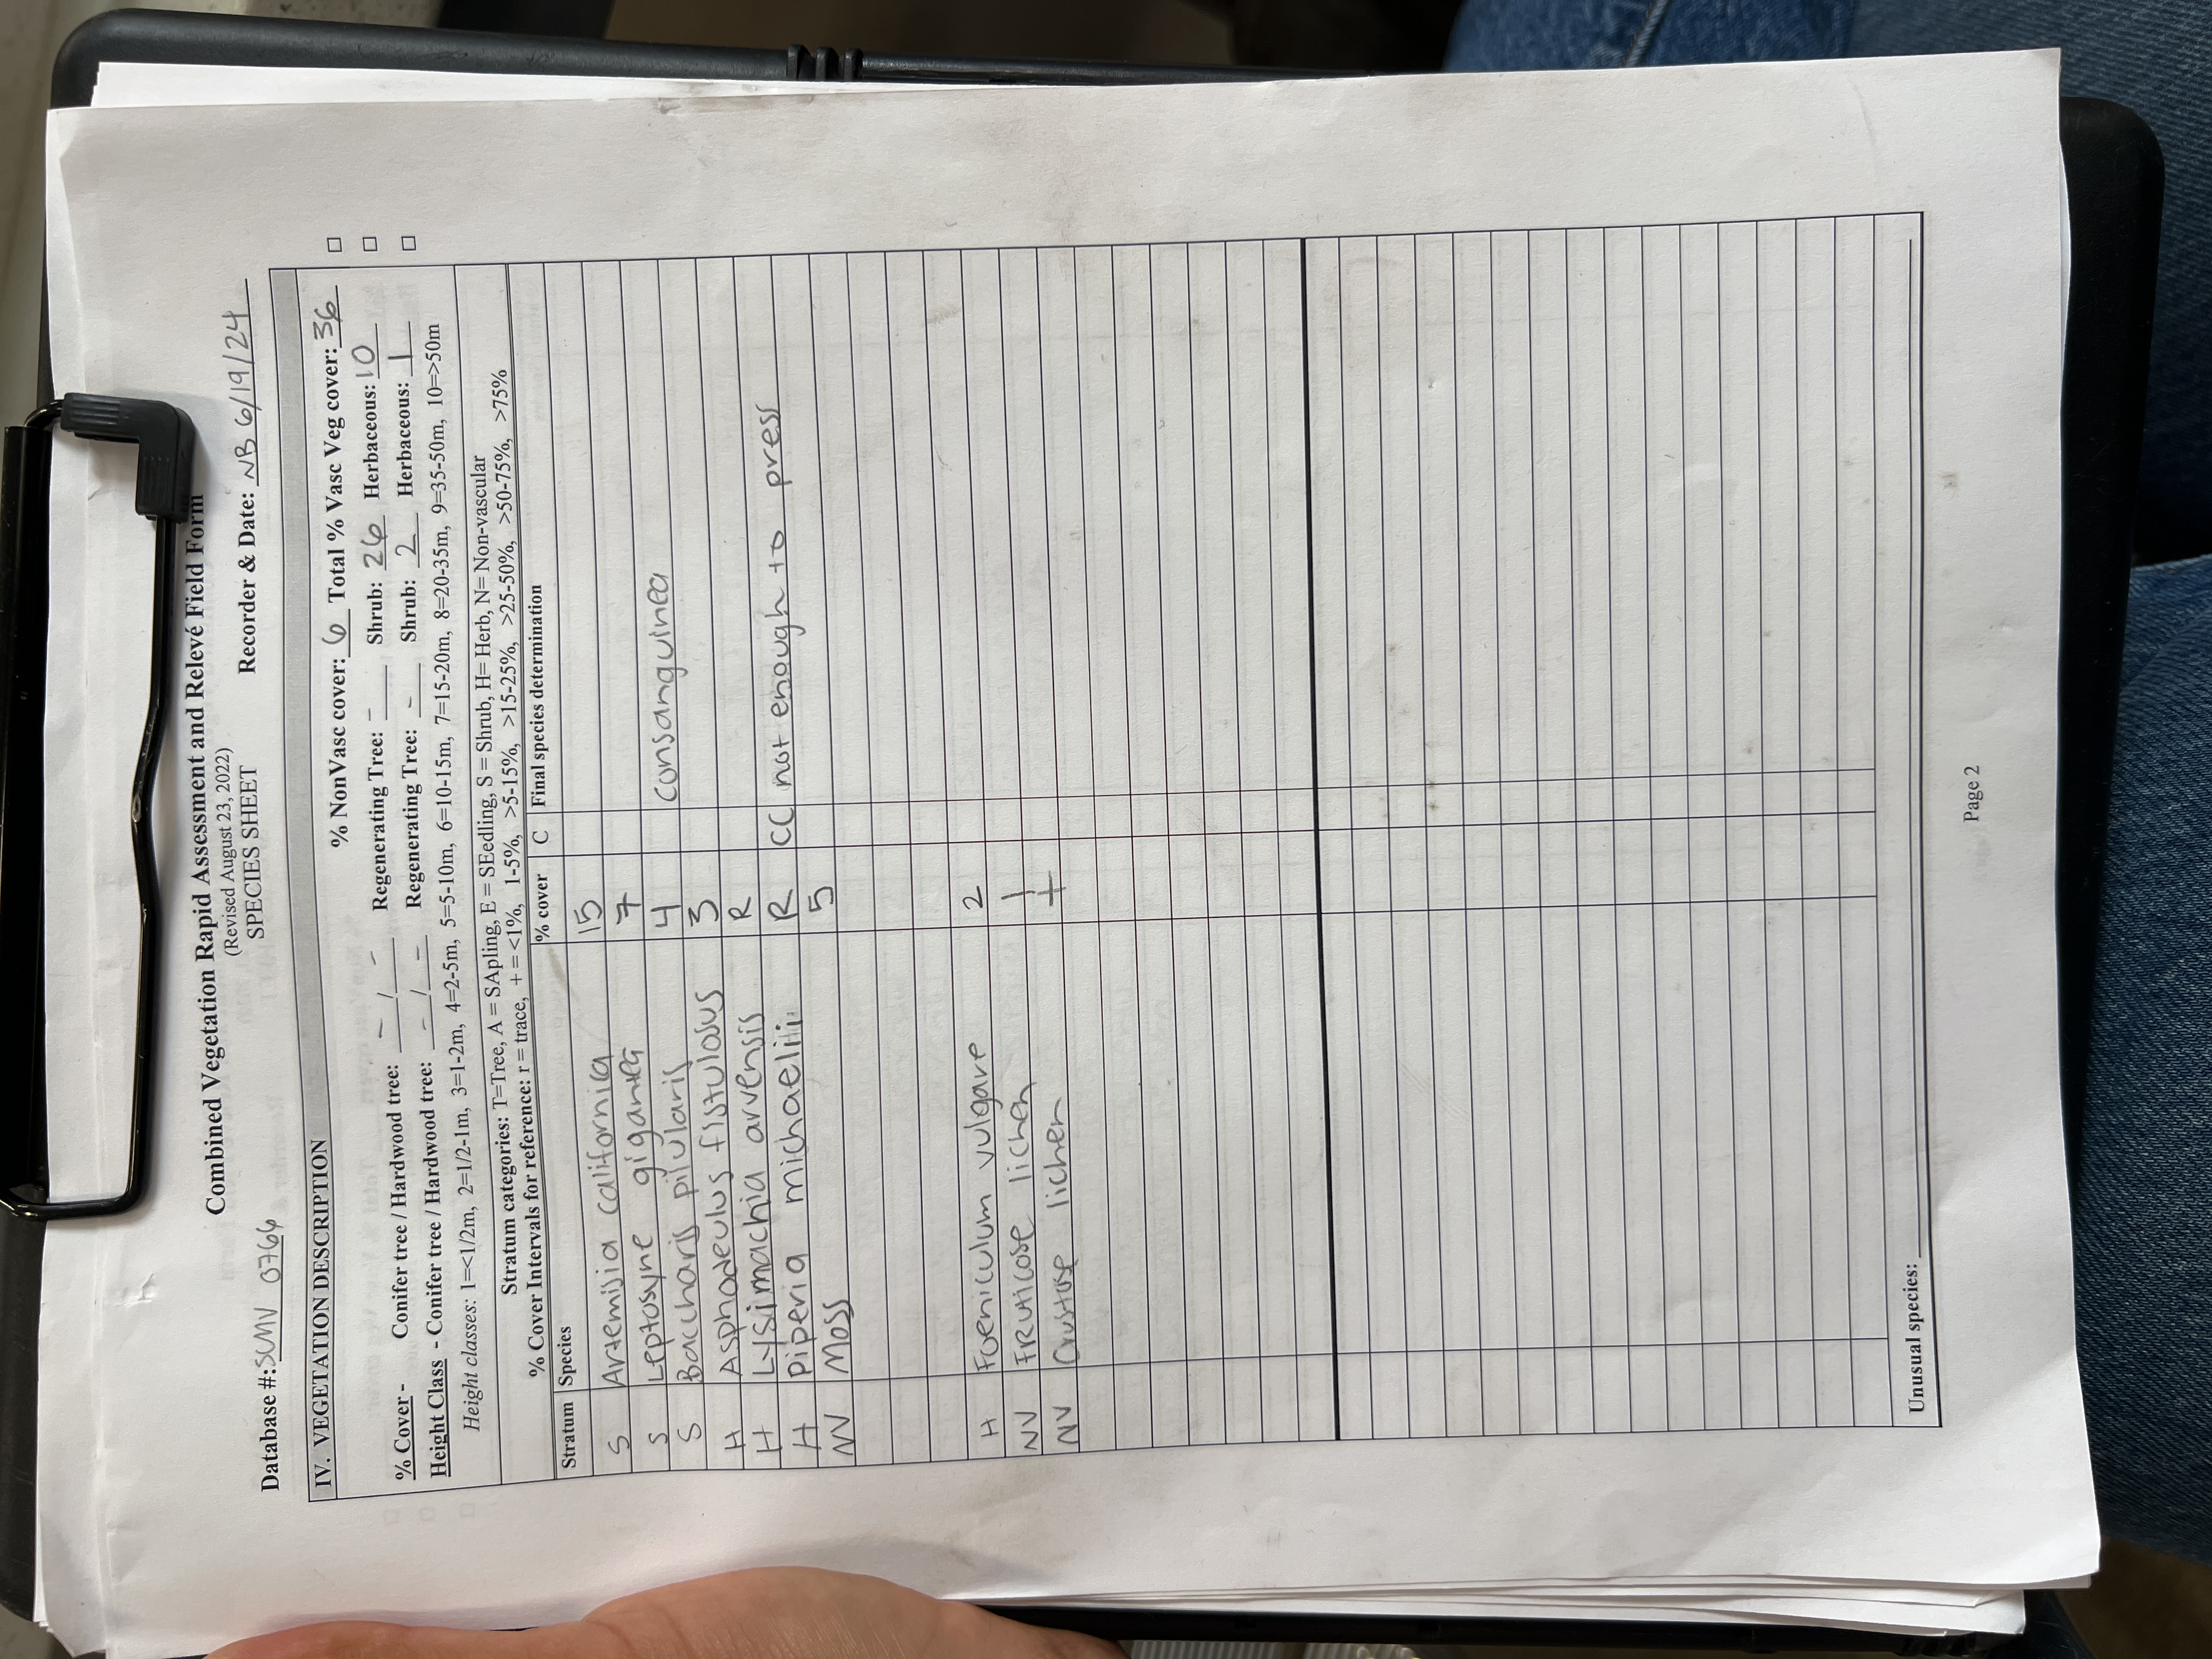 Combined Vegetation Rapid Assessment and Relevé Field Form
(Revised August 23, 2022)
SPECIES SHEET
Database #: SCMV 0764 Recorder & Date: NB 6/19/24
IV. VEGETATION DESCRIPTION
% NonVasc cover: 6 Total % Vasc Veg cover: 36 □
% Cover - Conifer tree / Hardwood tree: - / - Regenerating Tree: - Shrub: 26 Herbaceous: 10 □
Height Class - Conifer tree / Hardwood tree: - / - Regenerating Tree: - Shrub: 2 Herbaceous: 1 □
Height classes: 1=<1/2m, 2=1/2-1m, 3=1-2m, 4=2-5m, 5=5-10m, 6=10-15m, 7=15-20m, 8=20-35m, 9=35-50m, 10=>50m
Stratum categories: T=Tree, A = SApling, E = SEedling, S = Shrub, H= Herb, N= Non-vascular
% Cover Intervals for reference: r = trace, + = <1%, 1-5%, >5-15%, >15-25%, >25-50%, >50-75%, >75%
Stratum Species % cover C Final species determination
S Artemisia californica 15
S Leptosyne gigantea 7
S Baccharis pilularis 4 consanguinea
H Asphodeulus fistulosus 3
H Lysimachia arvensis R
H Piperia michaelii R CC not enough to press
NV Moss 5
H Foeniculum vulgare 2
NV Fruticose lichen 1
NV Crustose lichen +
Unusual species:
Page 2